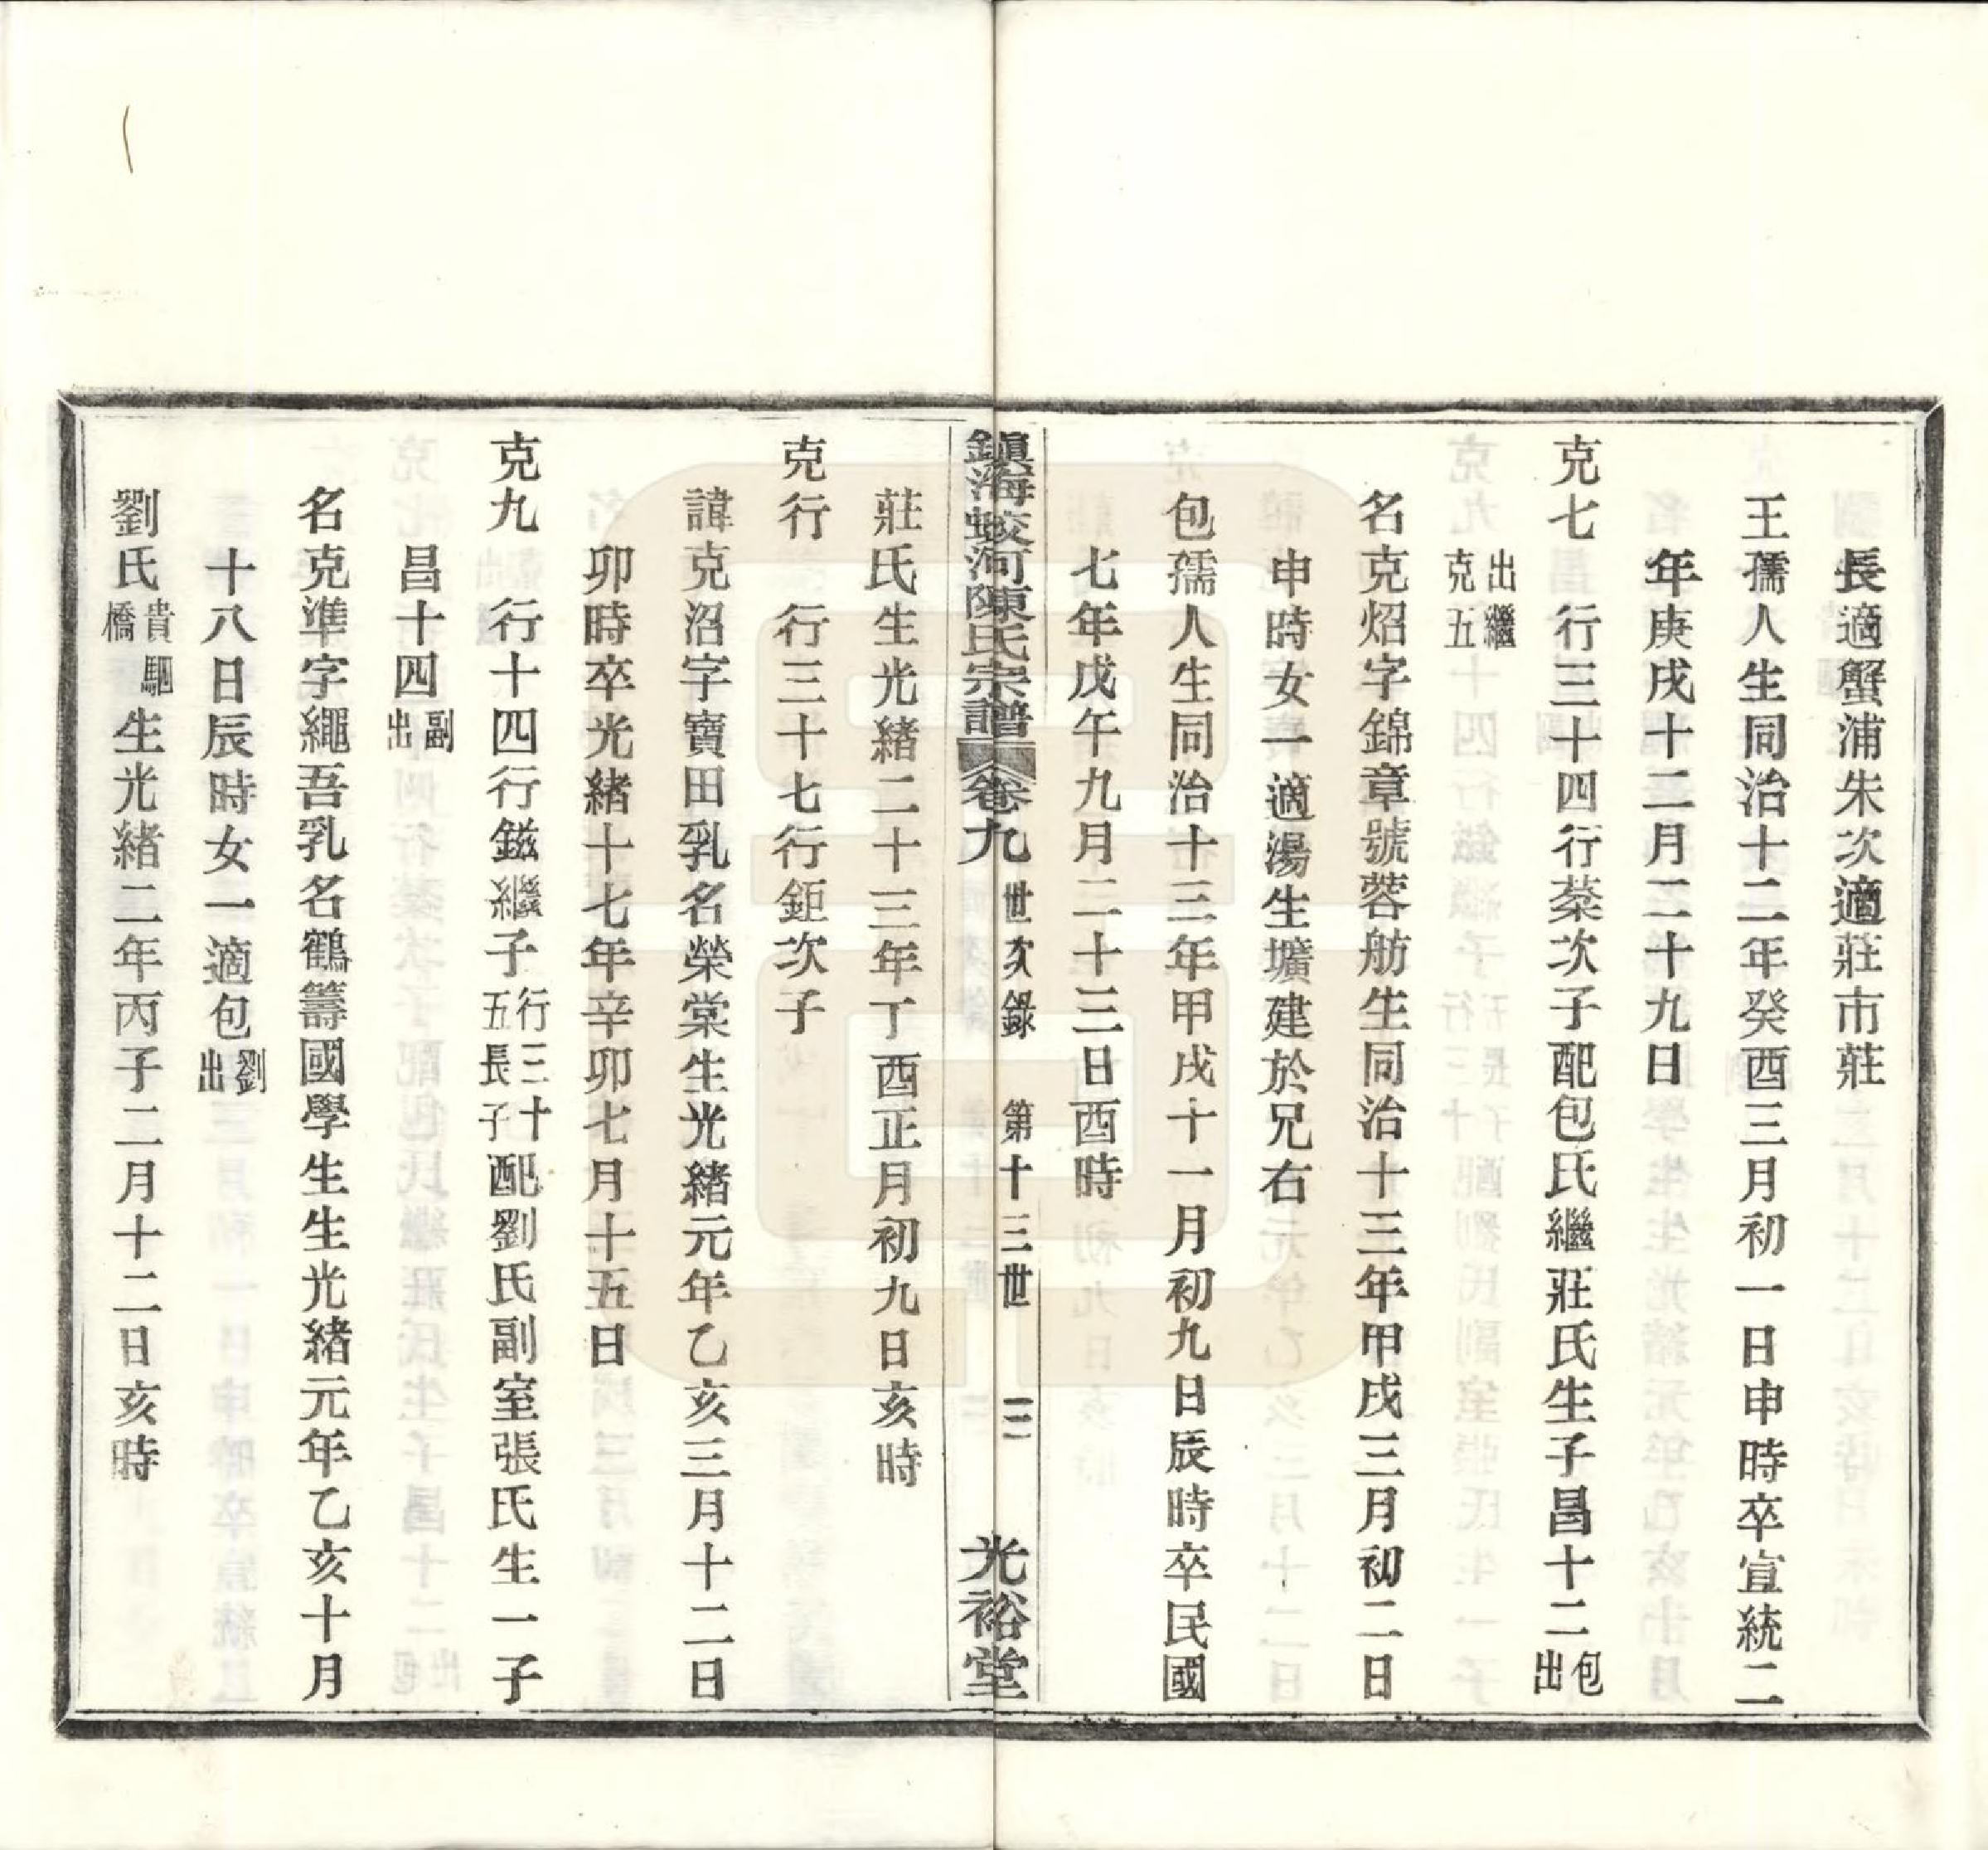 長適蟹浦朱次適莊市莊
王孺人生同治十二年癸酉三月初一日申時卒宣統二
年庚戌十二月二十九日
克七　行三十四行棻次子配包氏繼莊氏生子昌十二包出
出繼克五
名克炤字錦章號蓉舫生同治十三年甲戌三月初二日
申時女一適湯生壙建於兄右
包孺人生同治十三年甲戌十一月初九日辰時卒民國
七年戊午九月二十三日酉時
鎮海蛟河陳氏宗譜　卷九　世次錄　第十三世　二　光裕堂
莊氏生光緒二十三年丁酉正月初九日亥時
克行　行三十七行鉅次子
諱克沼字寶田乳名榮棠生光緒元年乙亥三月十二日
卯時卒光緒十七年辛卯七月十五日
克九　行十四行鎡繼子行三十五長子配劉氏副室張氏生一子
昌十四副出
名克準字繩吾乳名鶴籌國學生生光緒元年乙亥十月
十八日辰時女一適包劉出
劉氏貴駟橋生光緒二年丙子二月十二日亥時